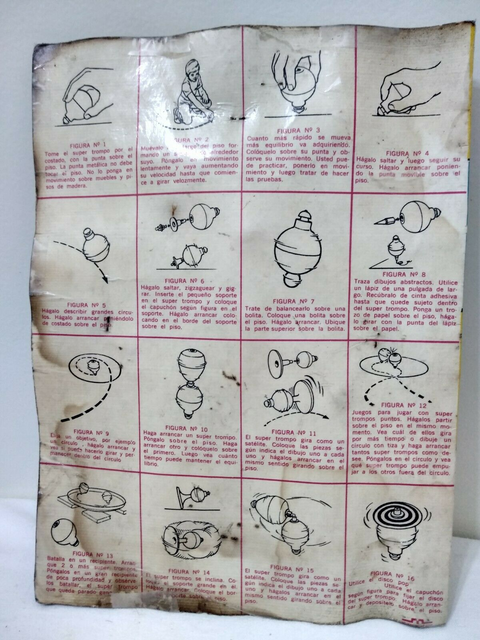 FIGURA Nº 1
Tome el super trompo por el
costado, con la punta sobre el
piso. La punta metálica no debe
tocar el piso. No lo ponga en
movimiento sobre muebles y pi-
sos de madera.
FIGURA Nº 2
piso for-
alrededor
suyo. Póngalo en movimiento
lentamente y vaya aumentando
su velocidad hasta que comien-
ce a girar velozmente.
FIGURA Nº 3
Cuanto más rápido se mueva
más equilibrio va adquiriendo.
Colóquelo sobre su punta y ob-
serve su movimiento. Usted pue-
de practicar, ponerlo en movi-
miento y luego tratar de hacer
las pruebas.
FIGURA Nº 4
Hágalo saltar y luego seguir su
curso. Hágalo arrancar ponien-
do la punta móvible sobre el
piso.
FIGURA Nº 5
Hágalo describir grandes círcu-
los. Hágalo arrancar poniéndolo
de costado sobre el piso.
FIGURA Nº 6
Hágalo saltar, zigzaguear y gi-
rar. Inserte el pequeño soporte
en el super trompo y coloque
el capuchón sobre el soporte.
Hágalo arrancar colo-
cando en el borde del soporte
sobre el piso.
FIGURA Nº 7
Trate de balancearlo sobre una
bolita. Coloque una bolita sobre
el piso. Hágalo arrancar. Ubique
la parte superior sobre la bolita.
FIGURA Nº 8
Traza dibujos abstractos. Utilice
un lápiz de una pulgada de lar-
go. Recúbralo de cinta adhesiva
hasta que quede sujeto dentro
del super trompo. Ponga un tro-
zo de papel sobre el piso, hága-
lo girar con la punta del lápiz
sobre el papel.
FIGURA Nº 9
un objetivo, por ejemplo
un círculo hágalo arrancar y
hacerlo girar y per-
del círculo.
FIGURA Nº 10
Haga arrancar un super trompo.
Póngalo sobre el piso. Haga
arrancar otro y colóquelo sobre
el primero. Luego vea cuánto
tiempo puede mantener el equi-
librio.
FIGURA Nº 11
El super trompo gira como un
satélite. Coloque las piezas se-
gún indica el dibujo una a cada
uno y hágalos arrancar en el
mismo sentido girando sobre el
piso.
FIGURA Nº 12
Juegos para jugar con super
trompos puntos. Hágalos partir
sobre el piso en el mismo mo-
mento. Vea cuál de ellos gira
por más tiempo o dibuje un
círculo con tiza y haga arrancar
tantos super trompos como de-
see. Póngalos en el círculo y vea
qué super trompo puede empu-
jar a los otros fuera del círculo.
FIGURA Nº 13
Batalla en un recipiente.
que 2 o más super trompos.
Póngalos en un gran recipiente
de poca profundidad y
los batallar, el super
que pueda
FIGURA Nº 14
El super trompo se inclina. Co-
loque el soporte grande en el
FIGURA Nº 15
El super trompo gira como un
satélite. Coloque las piezas se-
gún indica el dibujo una a cada
uno y hágalos arrancar en el
mismo sentido girando sobre el
FIGURA Nº 16
Utilice el disco
Utilice el capuchón
según figura para fijar el disco